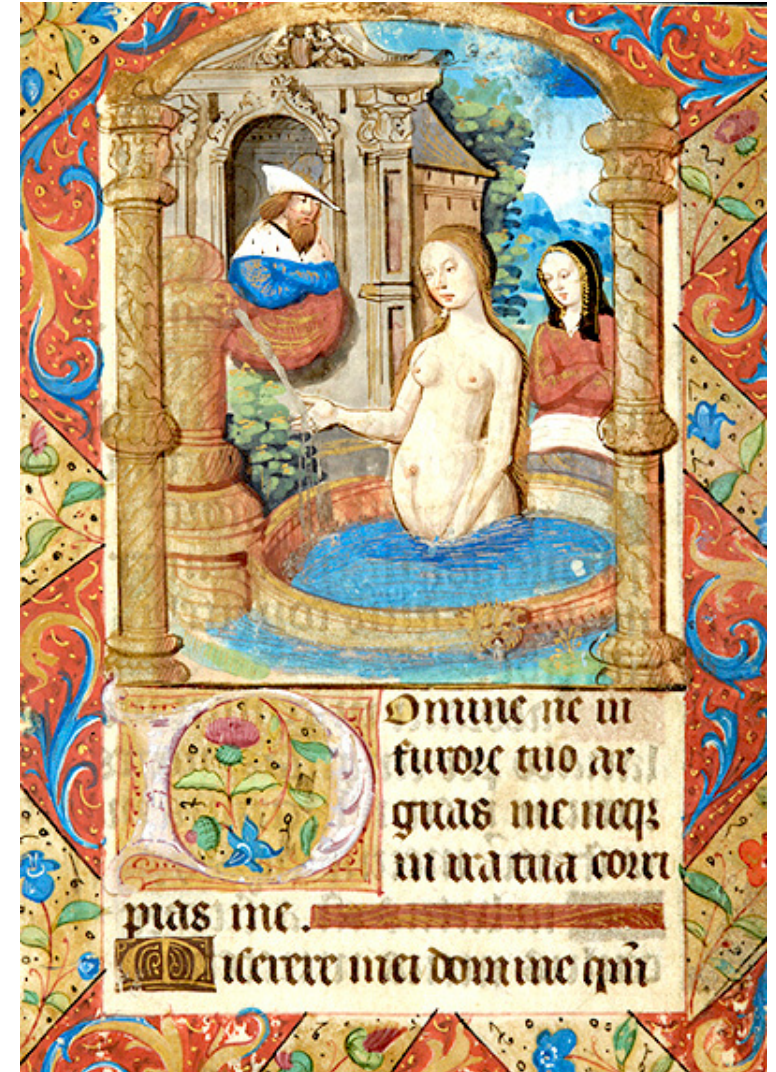 Domine ne in
furore tuo ar
guas me neqȝ
in ira tua corri
pias me.
Miserere mei domine qm̄